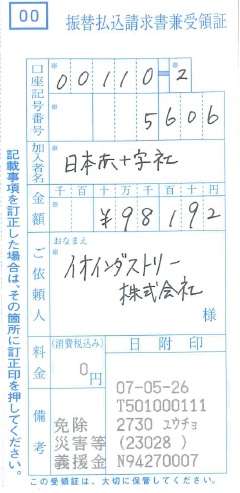 00
振替払込請求書兼受領証
口座記号番号
※
00110-2
※
5606
加入者名
※
日本赤十字社
金額
千 百 十 万 千 百 十 円
※
¥98192
ご依頼人
おなまえ
※
イオインダストリー
株式会社
様
料金
(消費税込み)
0円
日附印
備考
免除
災害等
義援金
07-05-26
T501000111
2730 ユウチョ
(23028 )
N94270007
記載事項を訂正した場合は、その箇所に訂正印を押してください。
この受領証は、大切に保管してください。